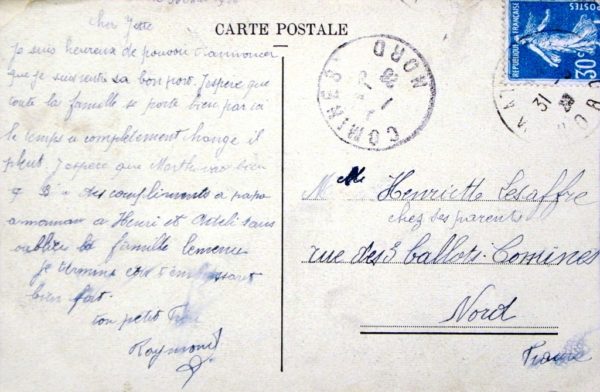 CARTE POSTALE
Cher Jette
Je suis heureux de pouvoir t'annoncer
que je suis sa bon port. J'espère que
toute la famille se porte bien par ici
le temps a completement change il
pleut J'espère que Marthe va bien
des compliments a papa
a maman a Henri et sans
oublier la famille
Je termine en t'embrassant
bien fort.
ton petit
Raymond
COMINES
NORD
POSTES
RÉPUBLIQUE FRANÇAISE
30c
31
Mlle Henriette Lesaffre
chez ses parents
rue des 3 ballots. Comines
Nord
France